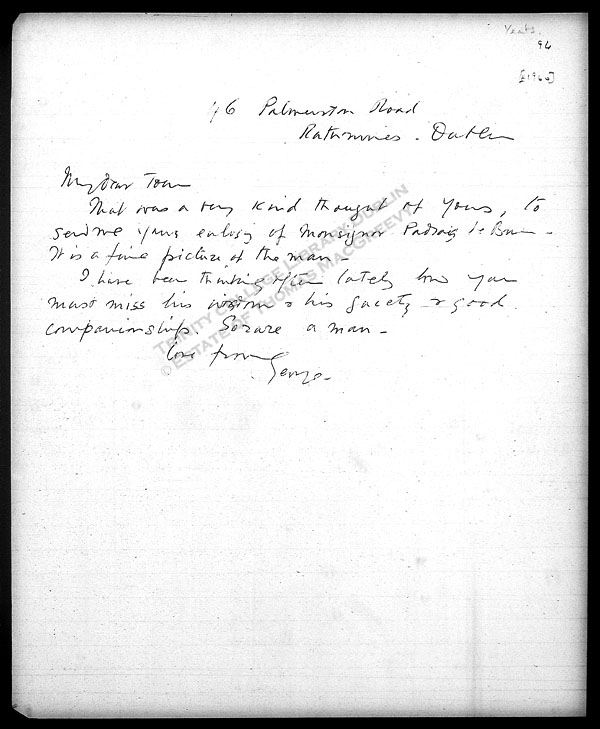 Yeats.
96
[1960]
46 Palmerston Road
Rathmines. Dublin
My dear Tom
That was a very kind thought of yours, to
send me your eulogy of Monsignor Padraig de Brun -
It is a fine picture of the man -
I have been thinking often lately how you
must miss his wisdom & his gaiety & good
companionship. So rare a man -
Love from
George -
TRINITY COLLEGE LIBRARY DUBLIN
© ESTATE OF THOMAS MACGREEVY